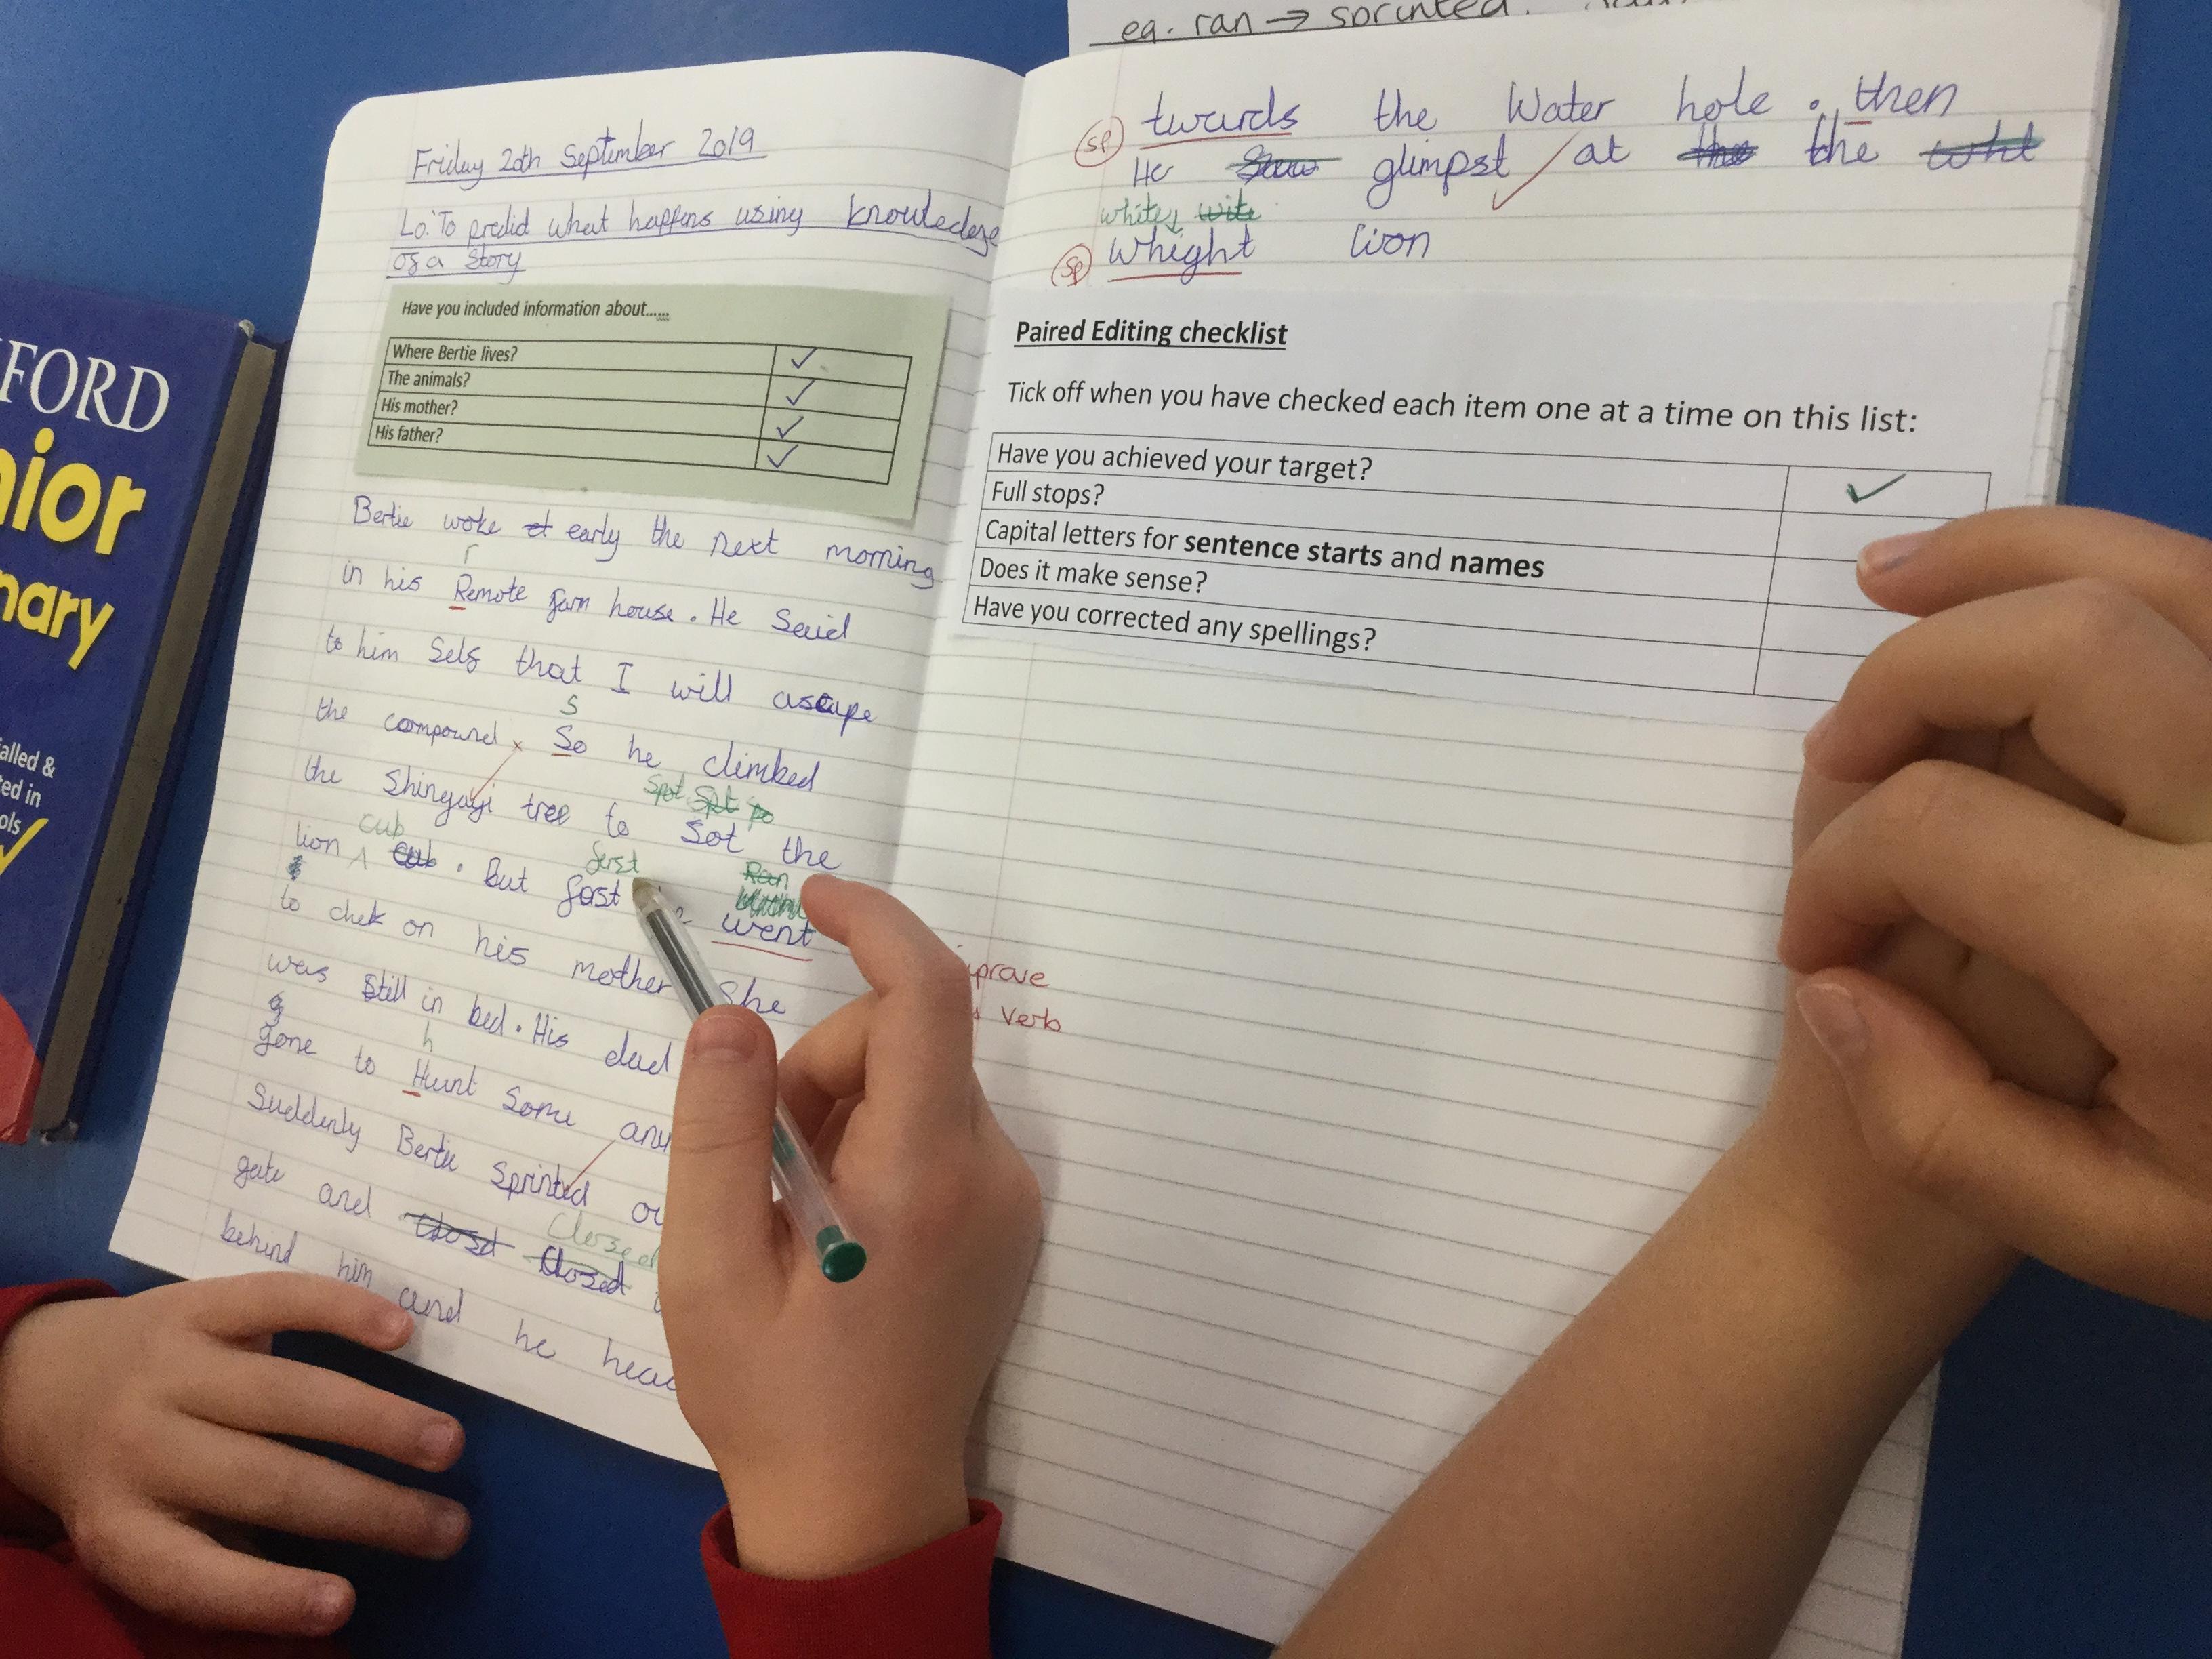 eg. ran → sprinted.
FORD
nior
nary
alled &
ted in
ols
Friday 20th September 2019
Lo: To predid what happens using knowledge
of a story
Have you included information about......
Where Bertie lives? ✓
The animals? ✓
His mother? ✓
His father? ✓
Bertie woke at early the next morning
r
in his Remote farm house. He Said
to him Self that I will ascape
s
the compound. So he climbed
the Shingayi tree to Sot the
spot spt po
cub
lion cub. But forst
ferst
Ran
went
to chek on his mother She
was Still in bed. His dad
g
h
gone to Hunt Some
Suddenly Bertie Sprinted
gate and closed closed
Closed
behind him and he
improve
verb
sp twards the Water hole. then
He Saw glimpst at the the whit
white wite
sp whight lion
Paired Editing checklist
Tick off when you have checked each item one at a time on this list:
Have you achieved your target? ✓
Full stops?
Capital letters for sentence starts and names
Does it make sense?
Have you corrected any spellings?